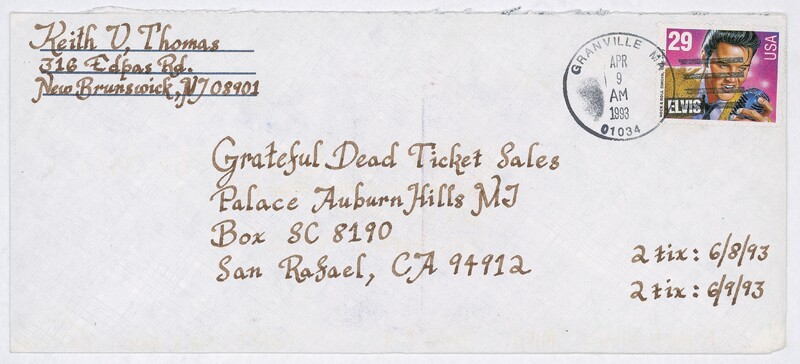 Keith V, Thomas
316 Edpas Rd.
New Brunswick, NJ 08901
GRANVILLE MA
APR
9
AM
1993
01034
29
USA
ELVIS
Grateful Dead Ticket Sales
Palace Auburn Hills MI
Box SC 8190
San Rafael, CA 94912
2 tix: 6/8/93
2 tix: 6/9/93